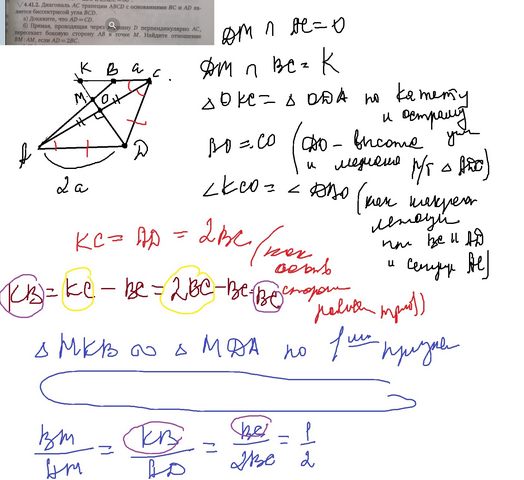 4.41.2. Диагональ AC трапеции ABCD с основаниями BC и AD яв-
ляется биссектрисой угла BCD.
а) Докажите, что AD = CD.
б) Прямая, проходящая через вершину D перпендикулярно AC,
пересекает боковую сторону AB в точке M. Найдите отношение
BM : AM, если AD = 2BC.
K B a C
M O
A D
2a
DM ∩ AC = O
DM ∩ BC = K
△OKC = △ODA по катету
и острому
углу
AO = CO (DO – высота
и медиана р/т △ADC)
∠KCO = ∠DAO (как накрест
лежащи
при BC и AD
и секущ AC)
KC = AD = 2BC (как
соотв
сторон
равен треуг))
KB = KC – BC = 2BC – BC = BC
△MKB ∞ △MDA по 1 призн
BM/AM = KB/AD = BC/2BC = 1/2